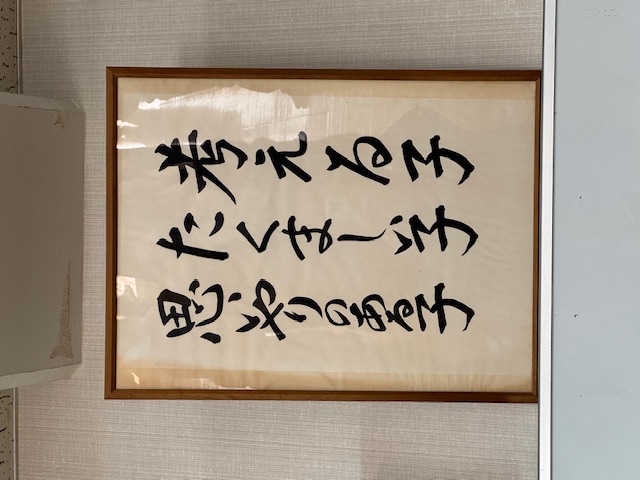 考える子
たくましい子
思いやりのある子